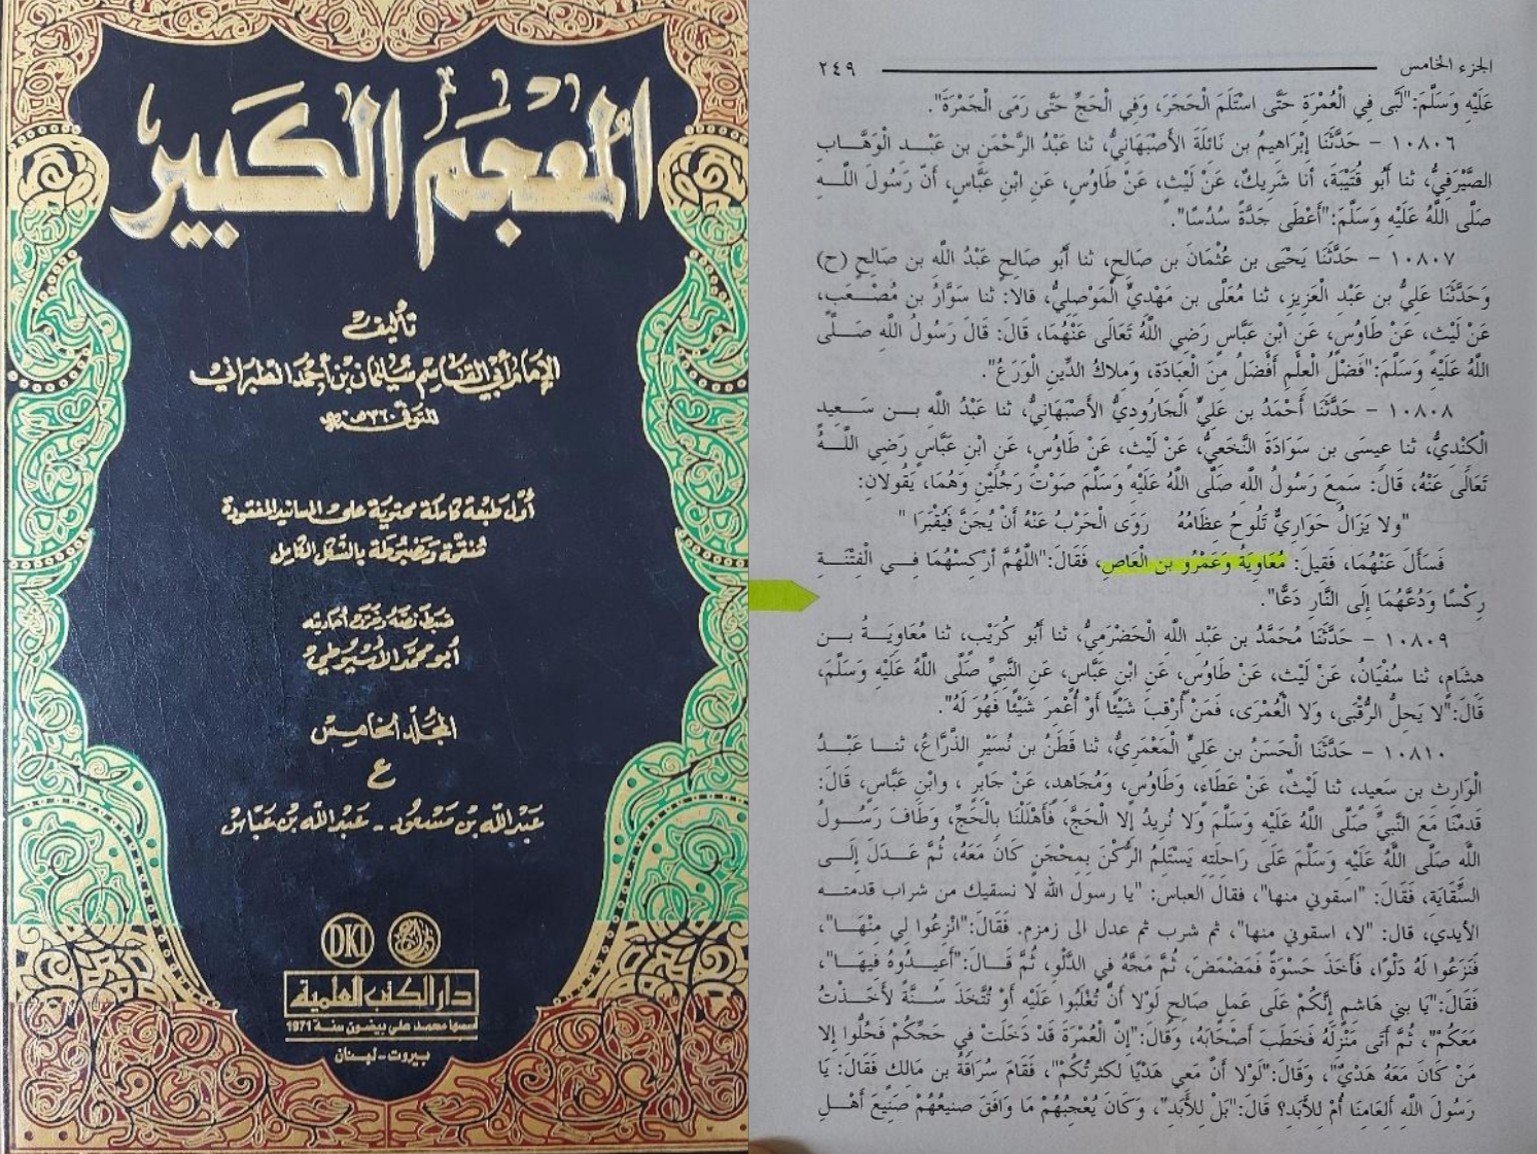 المعجم الكبير
تأليف
الإمام أبي القاسم سليمان بن أحمد الطبراني
المتوفى ٣٦٠ هـ
أول طبعة كاملة محتوية على المسانيد المفقودة
منقحة ومضبوطة بالشكل الكامل
ضبط نصه وخرج أحاديثه
أبو محمد الأسيوطي
المجلد الخامس
ع
عبد الله بن مسعود - عبد الله بن عباس
DKI
دار الكتب العلمية
أسسها محمد علي بيضون سنة 1971
بيروت - لبنان
الجزء الخامس ٢٤٩
عَلَيْهِ وَسَلَّمَ:"لَبَّى فِي الْعُمْرَةِ حَتَّى اسْتَلَمَ الْحَجَرَ، وَفِي الْحَجِّ حَتَّى رَمَى الْجَمْرَةَ".
١٠٨٠٦ - حَدَّثَنَا إِبْرَاهِيمُ بن نَائِلَةَ الأَصْبَهَانِيُّ، ثنا عَبْدُ الرَّحْمَنِ بن عَبْدِ الْوَهَّابِ
الصَّيْرَفِيُّ، ثنا أَبُو قُتَيْبَةَ، أنا شَرِيكٌ، عَنْ لَيْثٍ، عَنْ طَاوُسٍ، عَنِ ابْنِ عَبَّاسٍ، أَنّ رَسُولَ اللَّهِ
صَلَّى اللَّهُ عَلَيْهِ وَسَلَّمَ:"أَعْطَى جَدَّةً سُدُسًا".
١٠٨٠٧ - حَدَّثَنَا يَحْيَى بن عُثْمَانَ بن صَالِحٍ، ثنا أَبُو صَالِحٍ عَبْدُ اللَّهِ بن صَالِحٍ (ح)
وَحَدَّثَنَا عَلِيُّ بن عَبْدِ الْعَزِيزِ، ثنا مُعَلَّى بن مَهْدِيٍّ الْمَوْصِلِيُّ، قَالا: ثنا سَوَّارُ بن مُصْعَبٍ،
عَنْ لَيْثٍ، عَنْ طَاوُسٍ، عَنِ ابْنِ عَبَّاسٍ رَضِي اللَّهُ تَعَالَى عَنْهُمَا، قَالَ: قَالَ رَسُولُ اللَّهِ صَلَّى
اللَّهُ عَلَيْهِ وَسَلَّمَ:"فَضْلُ الْعِلْمِ أَفْضَلُ مِنَ الْعِبَادَةِ، وَمِلاكُ الدِّينِ الْوَرَعُ".
١٠٨٠٨ - حَدَّثَنَا أَحْمَدُ بن عَلِيٍّ الْجَارُودِيُّ الأَصْبَهَانِيُّ، ثنا عَبْدُ اللَّهِ بن سَعِيدٍ
الْكِنْدِيُّ، ثنا عِيسَى بن سَوَادَةَ النَّخَعِيُّ، عَنْ لَيْثٍ، عَنْ طَاوُسٍ، عَنِ ابْنِ عَبَّاسٍ رَضِي اللَّهُ
تَعَالَى عَنْهُ، قَالَ: سَمِعَ رَسُولُ اللَّهِ صَلَّى اللَّهُ عَلَيْهِ وَسَلَّمَ صَوْتَ رَجُلَيْنِ وَهُمَا، يَقُولانِ:
"ولا يَزَالُ حَوَارِيٌّ تَلُوحُ عِظَامُهُ رَوَى الْحَرْبُ عَنْهُ أَنْ يُجَنَّ فَيُقْبَرَا "
فَسَأَلَ عَنْهُمَا، فَقِيلَ: مُعَاوِيَةُ وَعَمْرُو بن الْعَاصِ، فَقَالَ:"اللَّهُمَّ أرْكِسْهُمَا فِي الْفِتْنَةِ
رِكْسًا وَدُعَّهُمَا إِلَى النَّارِ دَعًّا".
١٠٨٠٩ - حَدَّثَنَا مُحَمَّدُ بن عَبْدِ اللَّهِ الْحَضْرَمِيُّ، ثنا أَبُو كُرَيْبٍ، ثنا مُعَاوِيَةُ بن
هِشَامٍ، ثنا سُفْيَانُ، عَنْ لَيْثٍ، عَنْ طَاوُسٍ، عَنِ ابْنِ عَبَّاسٍ، عَنِ النَّبِيِّ صَلَّى اللَّهُ عَلَيْهِ وَسَلَّمَ،
قَالَ:"لا يَحِلُّ الرُّقْبَى، وَلا الْعُمْرَى، فَمَنْ أُرْقِبَ شَيْئًا أَوْ أُعْمِرَ شَيْئًا فَهُوَ لَهُ".
١٠٨١٠ - حَدَّثَنَا الْحَسَنُ بن عَلِيٍّ الْمَعْمَرِيُّ، ثنا قَطَنُ بن نُسَيْرٍ الذَّرَّاعُ، ثنا عَبْدُ
الْوَارِثِ بن سَعِيدٍ، ثنا لَيْثٌ، عَنْ عَطَاءٍ، وَطَاوُسٍ، وَمُجَاهِدٍ، عَنْ جَابِرٍ ، وابْنِ عَبَّاسٍ، قَالَ:
قَدِمْنَا مَعَ النَّبِيِّ صَلَّى اللَّهُ عَلَيْهِ وَسَلَّمَ وَلا نُرِيدُ إِلا الْحَجَّ، فَأَهْلَلْنَا بِالْحَجِّ، وَطَافَ رَسُولُ
اللَّهِ صَلَّى اللَّهُ عَلَيْهِ وَسَلَّمَ عَلَى رَاحِلَتِهِ يَسْتَلِمُ الرُّكْنَ بِمِحْجَنٍ كَانَ مَعَهُ، ثُمَّ عَدَلَ إِلَى
السِّقَايَةِ، فَقَالَ: "اسقوني منها"، فقال العباس: "يا رسول الله لا نسقيك من شراب قدمته
الأيدي، قال: "لا، اسقوني منها"، ثم شرب ثم عدل الى زمزم. فَقَالَ:"انْزِعُوا لِي مِنْهَا"،
فَنَزَعُوا لَهُ دَلْوًا، فَأَخَذَ حَسْوَةً فَمَضْمَضَ، ثُمَّ مَجَّهُ فِي الدَّلْوِ، ثُمَّ قَالَ:"أَعِيدُوهُ فِيهَا"،
فَقَالَ:"يَا بني هَاشِمٍ إِنَّكُمْ عَلَى عَمِلٍ صَالِحٍ لَوْلا أَنْ تُغْلَبُوا عَلَيْهِ أَوْ تُتَّخَذَ سُنَّةً لأَخَذْتُ
مَعَكُمْ"، ثُمَّ أَتَى مَنْزِلَهُ فَخَطَبَ أَصْحَابَهُ، وَقَالَ:"إِنَّ الْعُمْرَةَ قَدْ دَخَلَتْ فِي حَجِّكُمْ فَحُلُّوا إِلا
مَنْ كَانَ مَعَهُ هَدْيٌ"، وَقَالَ:"لَوْلا أَنَّ مَعِي هَدْيًا لكثرتُكُمْ"، فَقَامَ سُرَاقَةُ بن مَالِكٍ فَقَالَ: يَا
رَسُولَ اللَّهِ أَلِعَامِنَا أَمْ لِلأَبَدِ؟ قَالَ:"بَلْ لِلأَبَدِ"، وَكَانَ يُعْجِبُهُمْ مَا وَافَقَ صَنِيعُهُمْ صَنِيعَ أَهْلِ